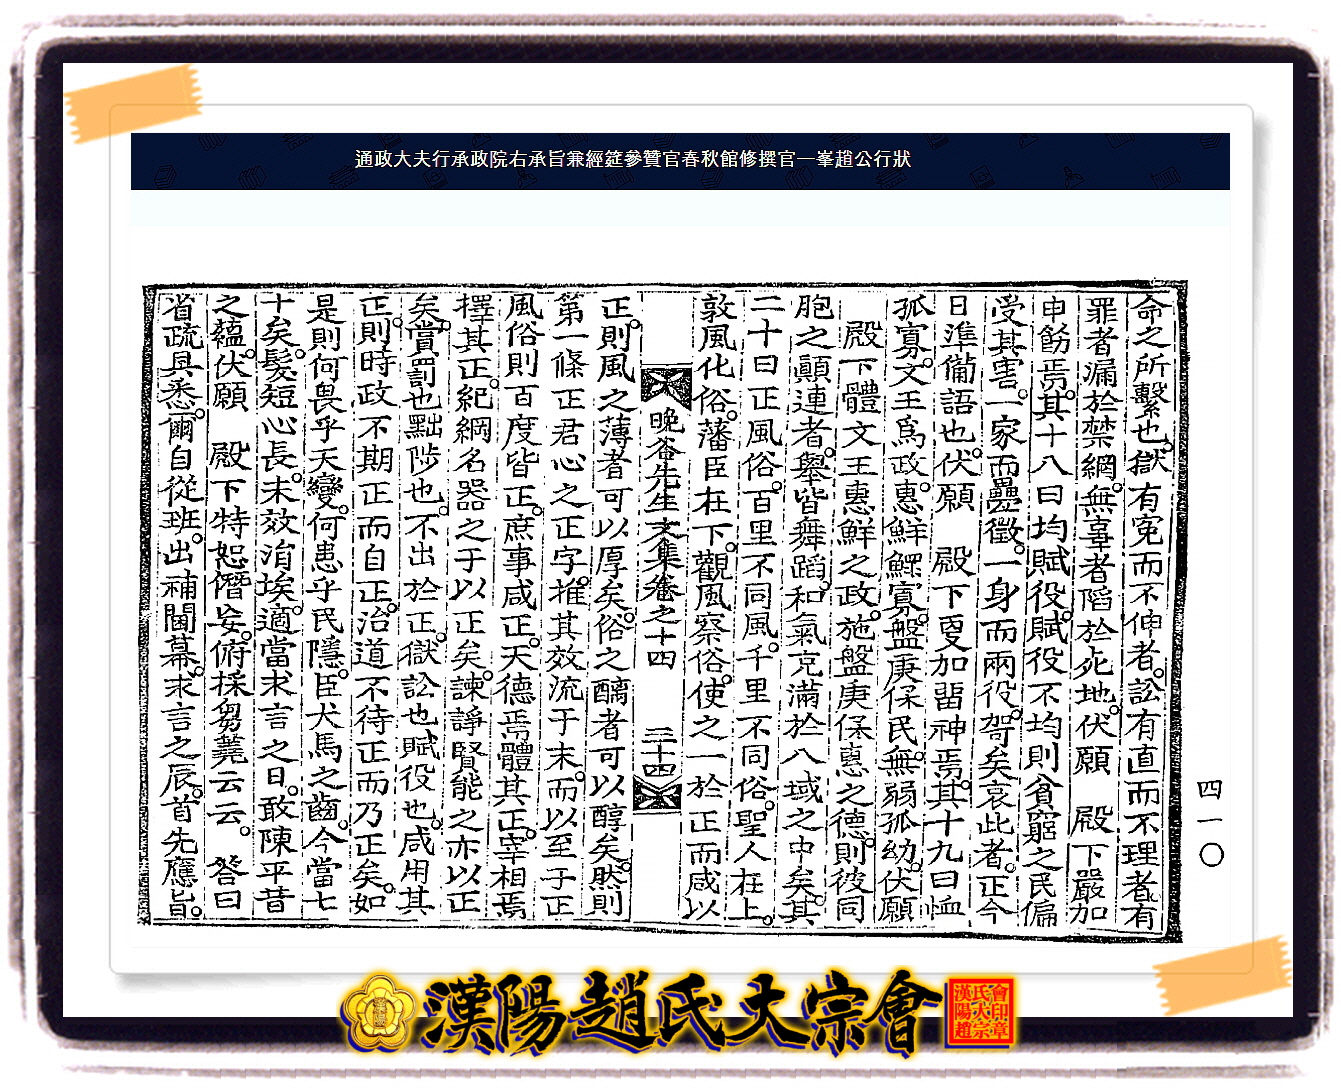 通政大夫行承政院右承旨兼經筵參贊官春秋館修撰官一峯趙公行狀
命之所繫也獄有寃而不伸者訟有直而不理者有
罪者漏於禁網無辜者陷於死地伏願 殿下嚴加
申飭焉其十八曰均賦役賦役不均則貧窮之民偏
受其害一家而疊徵一身而兩役哿矣哀此者正今
日準備語也伏願 殿下更加留神焉其十九曰恤
孤寡文王爲政惠鮮鰥寡盤庚保民無弱孤幼伏願
殿下體文王惠鮮之政施盤庚保惠之德則彼同
胞之顚連者擧皆舞蹈和氣充滿於八域之中矣其
二十曰正風俗百里不同風千里不同俗聖人在上
敦風化俗藩臣在下觀風察俗使之一於正而咸以
晩谷先生文集卷之十四 三十四
正則風之薄者可以厚矣俗之醨者可以醇矣然則
第一條正君心之正字推其效流于末而以至于正
風俗則百度皆正庶事咸正天德焉體其正宰相焉
擇其正紀綱名器之于以正矣諫諍賢能之亦以正
矣賞罰也黜陟也不出於正獄訟也賦役也咸用其
正則時政不期正而自正治道不待正而乃正矣如
是則何畏乎天變何患乎民隱臣犬馬之齒今當七
十矣髮短心長未效涓埃適當求言之日敢陳平昔
之蘊伏願 殿下特恕僭妄俯採芻蕘云云 答曰
省疏具悉爾自從班出補閫幕求言之辰首先應旨
四一〇
漢陽趙氏大宗會
漢陽趙氏大宗會印章
漢陽